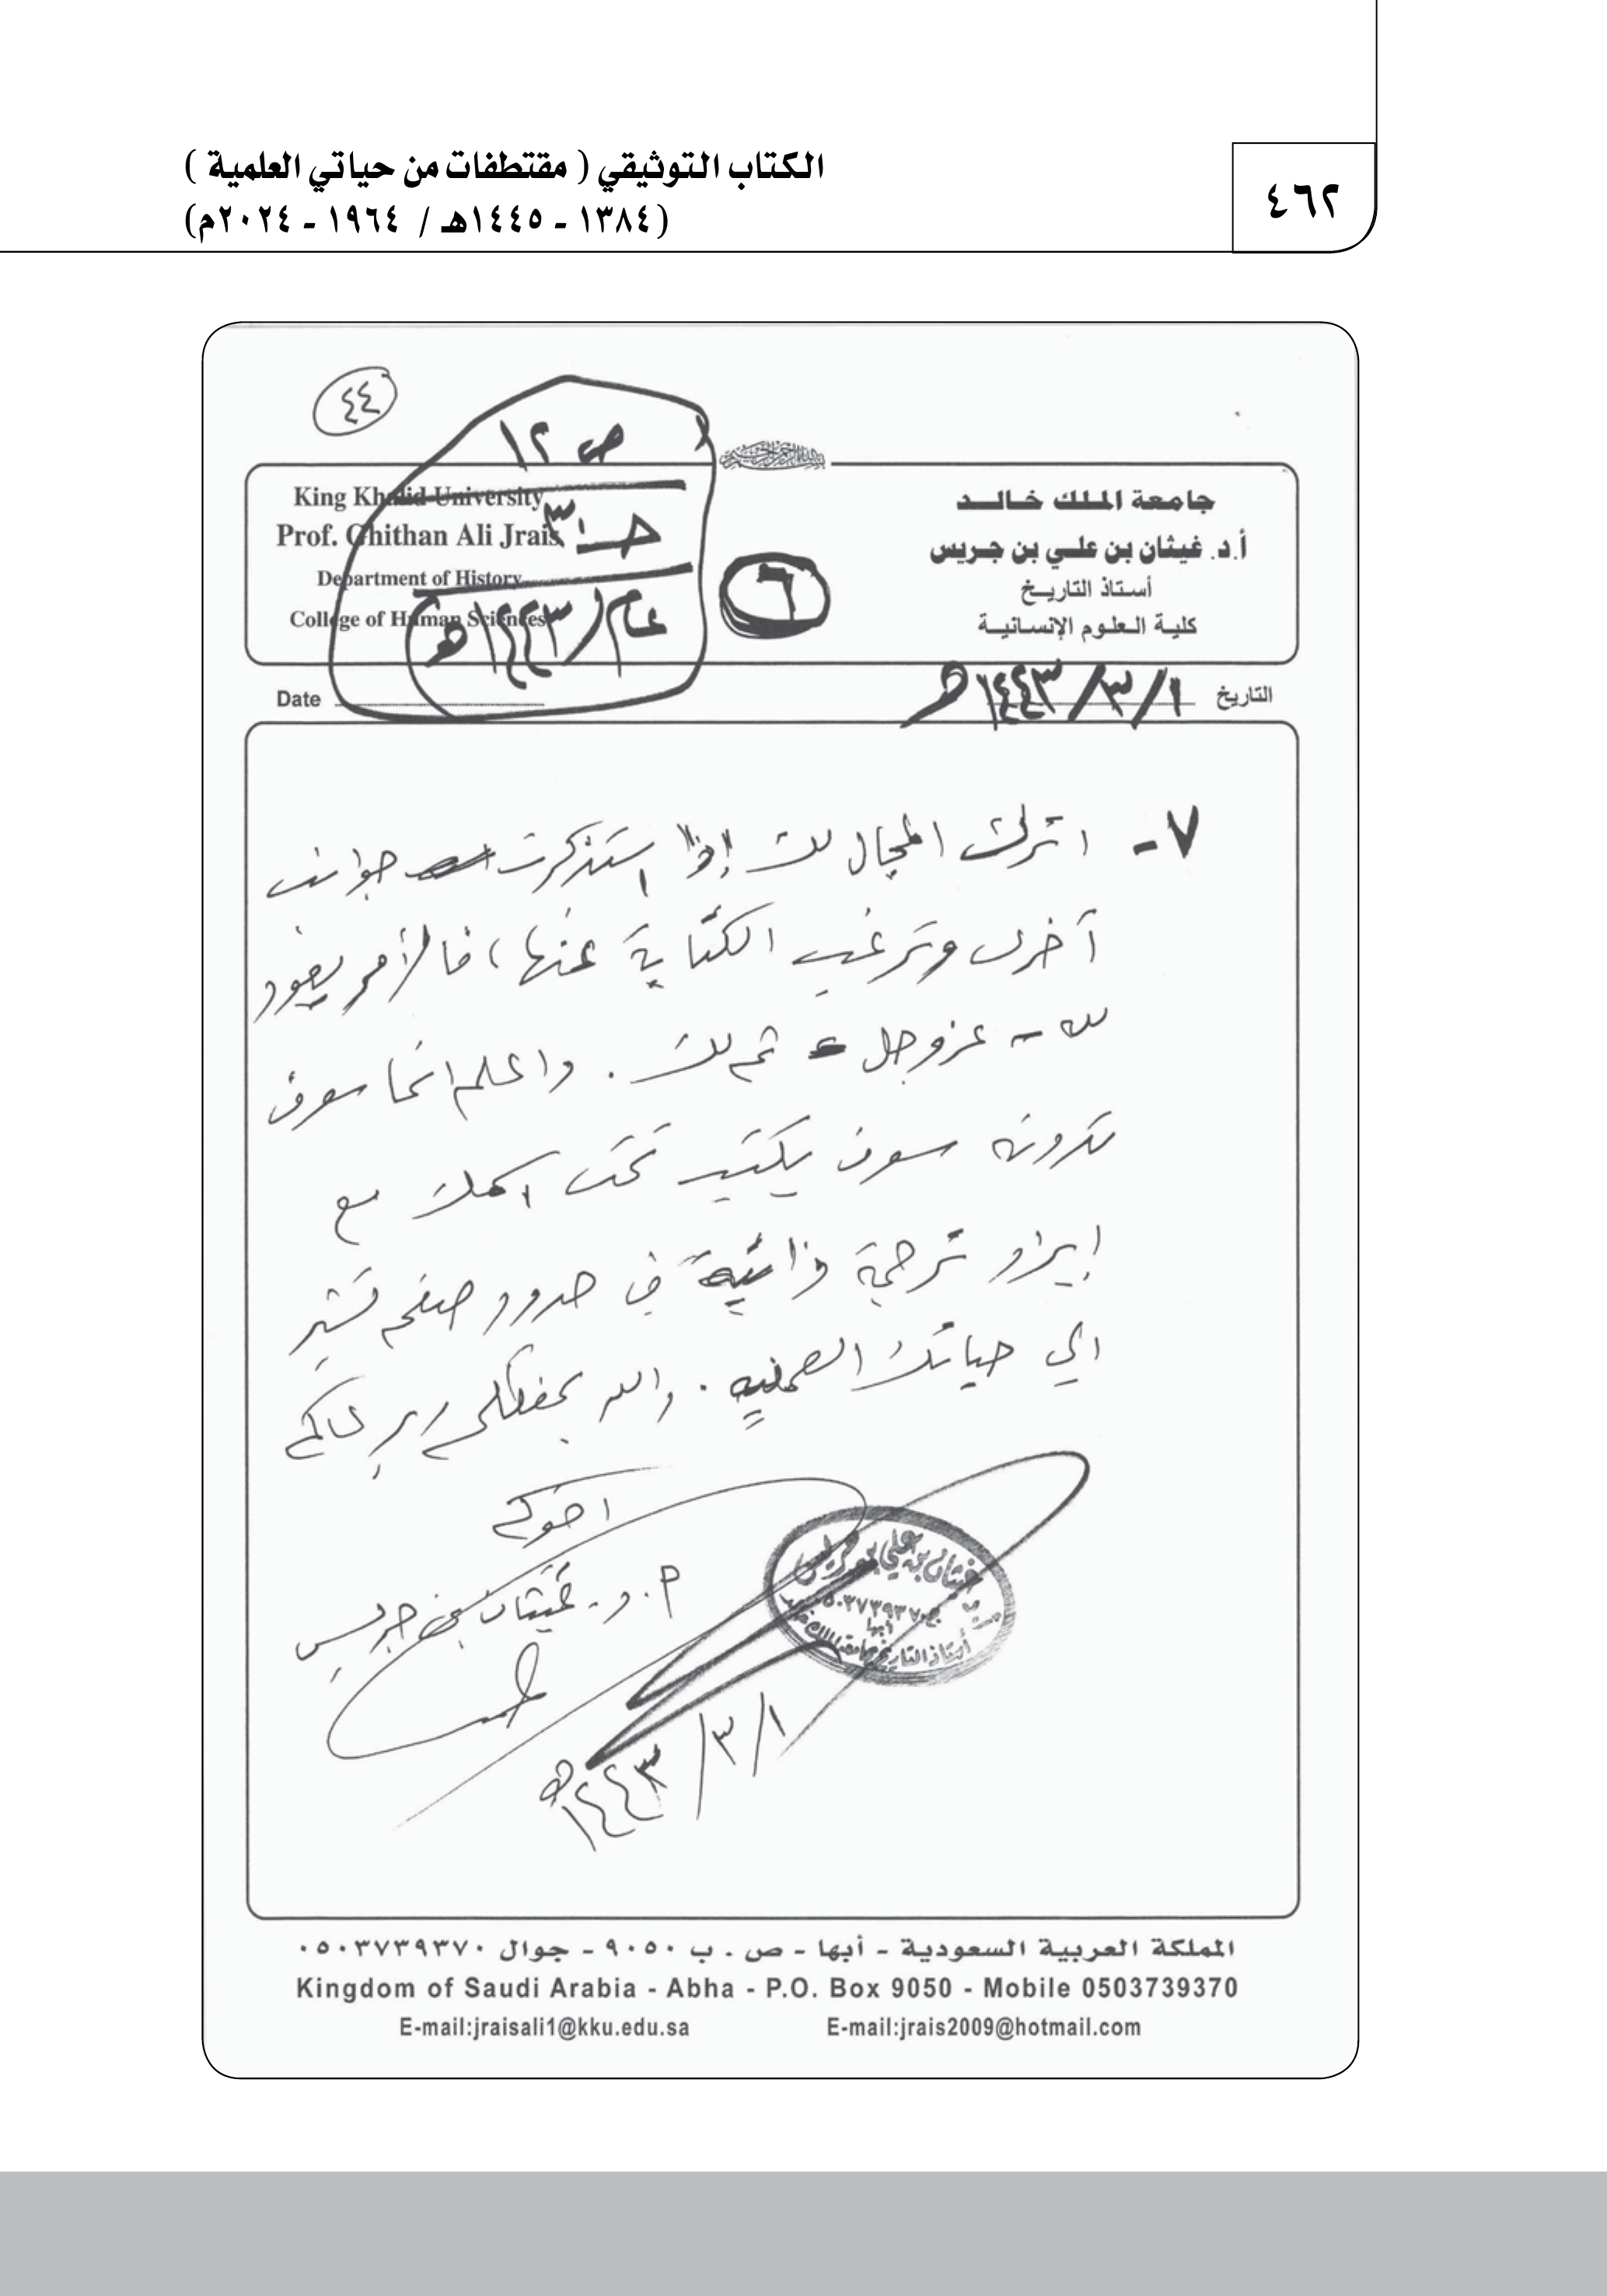 الكتاب التوثيقي ( مقتطفات من حياتي العلمية )
(١٣٨٤ - ١٤٤٥هـ / ١٩٦٤ - ٢٠٢٤م)
٤٦٢
٤٤
ص ١٢
حـ ٣
عام / ١٤٤٣هـ
٦
جامعة الملك خالد
أ.د. غيثان بن علي بن جريس
أستاذ التاريخ
كلية العلوم الإنسانية
King Khalid University
Prof. Ghithan Ali Jrais
Department of History
College of Human Sciences
التاريخ ١/ ٣/ ١٤٤٣هـ
Date
٧- اترك المجال لك إذا استذكرت جوانب
آخرى وترغب الكتابة عنها، فالأمر يعود
لله - عز وجل - ثم لك. واعلم انما سوف
تدونه سوف يكتب تحت اسمك مع
إيراد ترجمة ذاتية في حدود صفحة تشير
الي حياتك العلمية. والله يحفظكم ويرعاكم
اخوكم
أ.د. غيثان بن جريس
غيثان بن علي بن جريس
٠٥٠٣٧٣٩٣٧٠
أبها
أستاذ التاريخ بجامعة الملك خالد
١ / ٣ / ١٤٤٣هـ
المملكة العربية السعودية - أبها - ص . ب ٩٠٥٠ - جوال ٠٥٠٣٧٣٩٣٧٠
Kingdom of Saudi Arabia - Abha - P.O. Box 9050 - Mobile 0503739370
E-mail:jraisali1@kku.edu.sa E-mail:jrais2009@hotmail.com